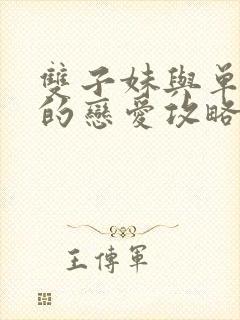 雙子妹與單
的戀愛攻略
王傳軍